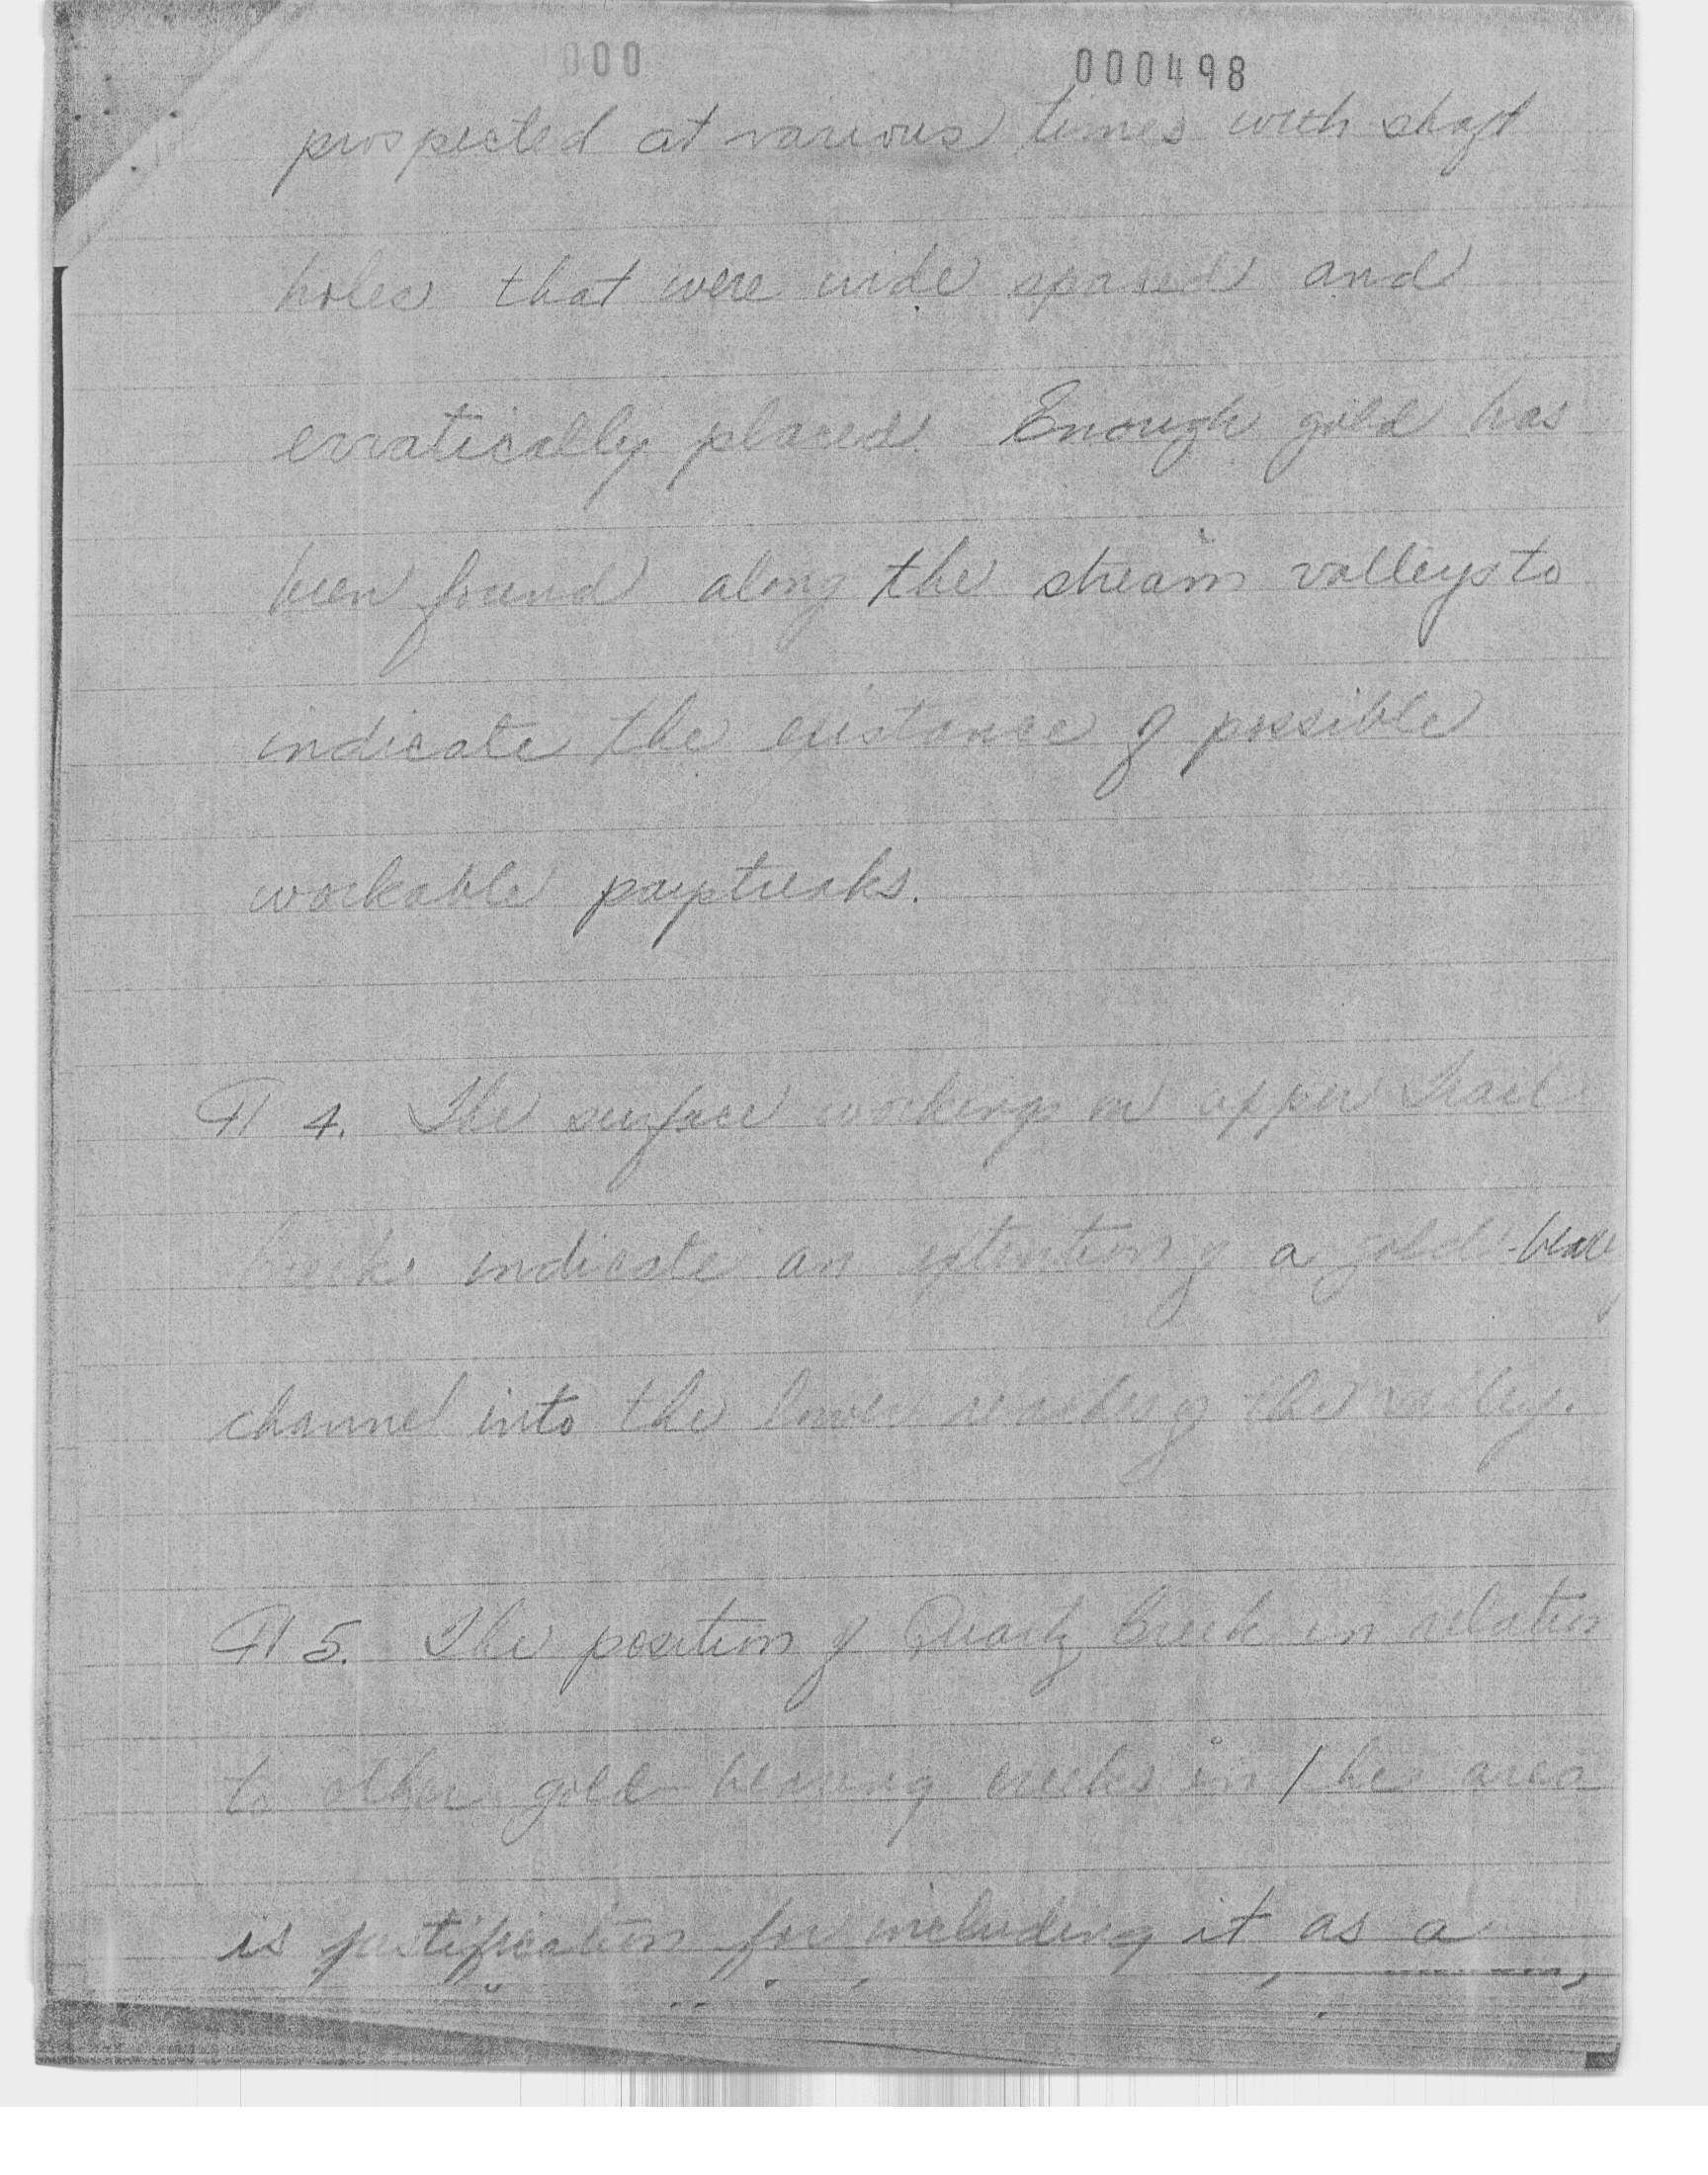 000 000498
prospected at various times with shaft
holes that were wide spaced and
erratically placed. Enough gold has
been found along the stream valleys to
indicate the existance of possible
workable paystreaks.
¶ 4. The surface workings on upper Trail
Creek indicate an extention of a gold-bearing
channel into the lower reaches of the valley.
¶ 5. The position of Quartz Creek in relation
to other gold-bearing creeks in the area
is justification for including it as a